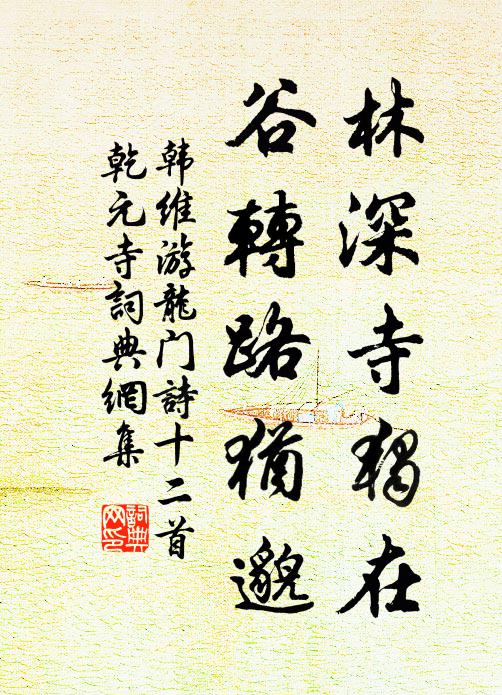 林深寺獨在
谷轉路猶邈
韩维游龍门詩十二首
乾元寺詞典網集
詞典网印